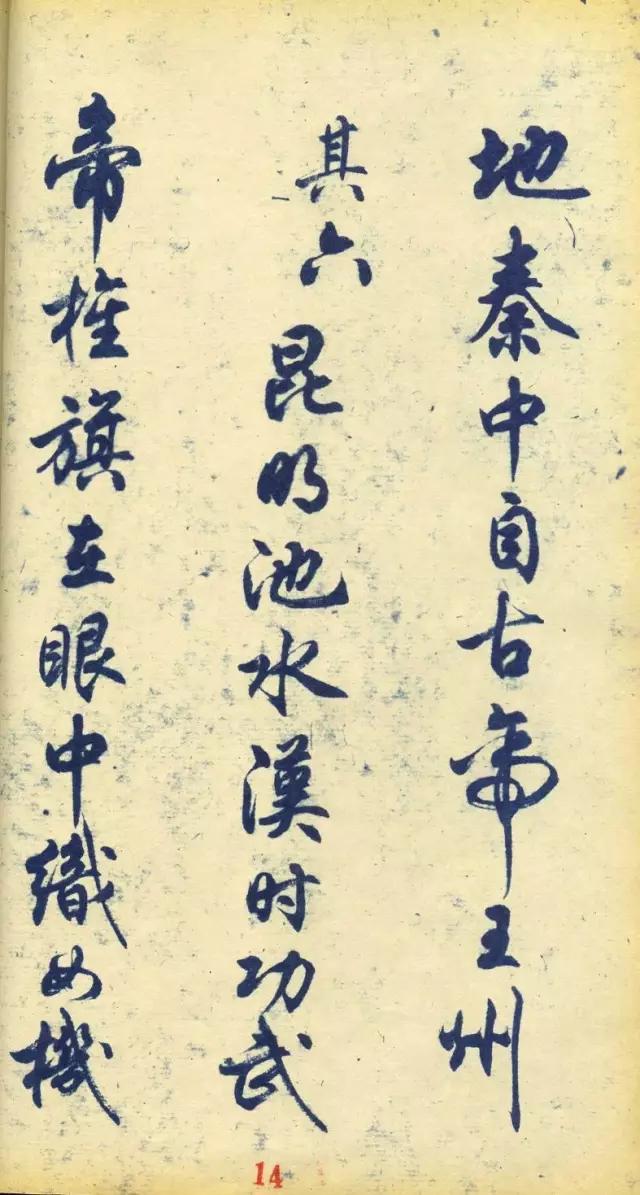 地秦中自古帝王州
其六 昆明池水漢时功武
帝旌旗在眼中織女機
14